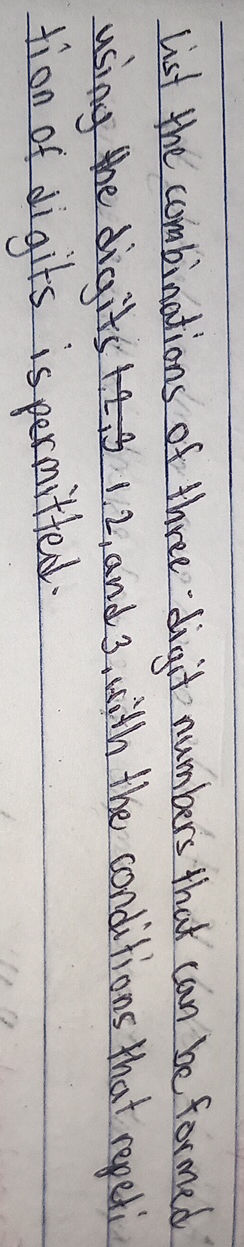 List the combinations of three-digit numbers that can be formed
using the digits 1,2,3 1,2,and 3, with the conditions that repeti
tion of digits is permitted.